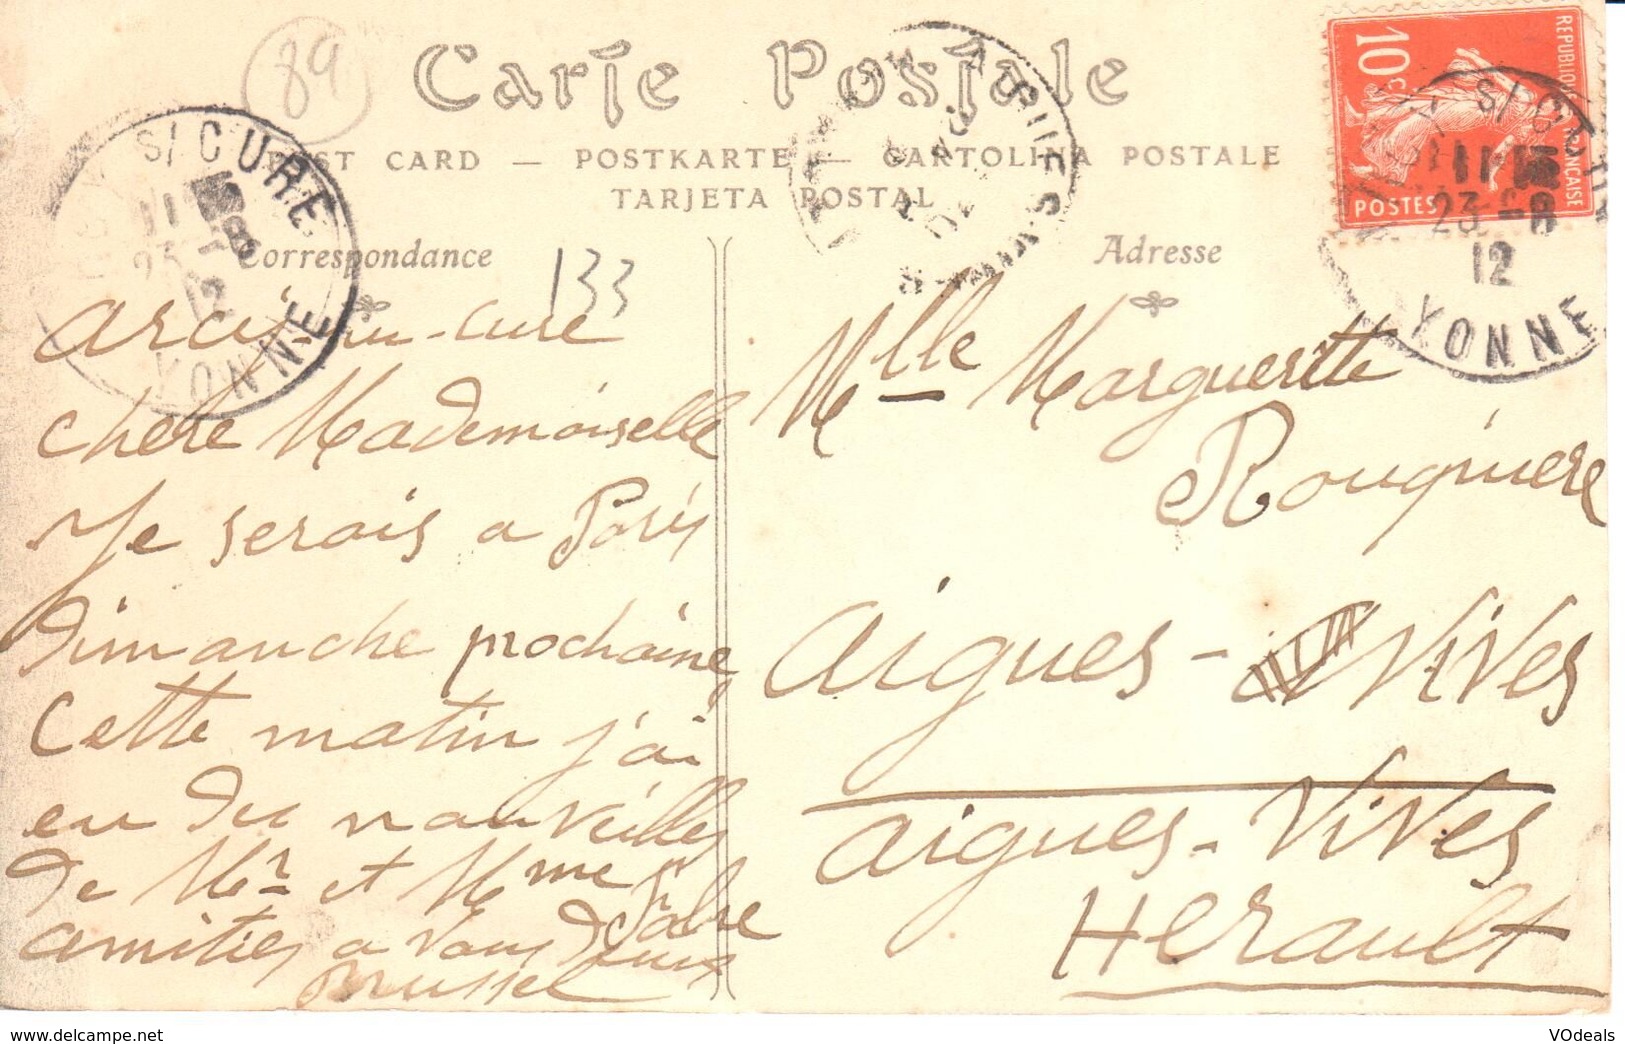 89
Carte Postale
POST CARD — POSTKARTE — CARTOLINA POSTALE
TARJETA POSTAL
Correspondance
Adresse
133
S/ CURE
11
23 -8
12
YONNE
REPUBLIQUE FRANCAISE
10c
POSTES
S/ CURE
11
23 -8
12
YONNE
arcis-su-cure
chere Mademoiselle
Je serais a Paris
Dimanche prochaine
Cette matin j'ai
eu du nauveilles
de Mr et Mme
Fabre
amities a vous deux
Mlle Marguerite
Rouquiere
aigues - Vives
aigues - Vives
Herault
VOdeals